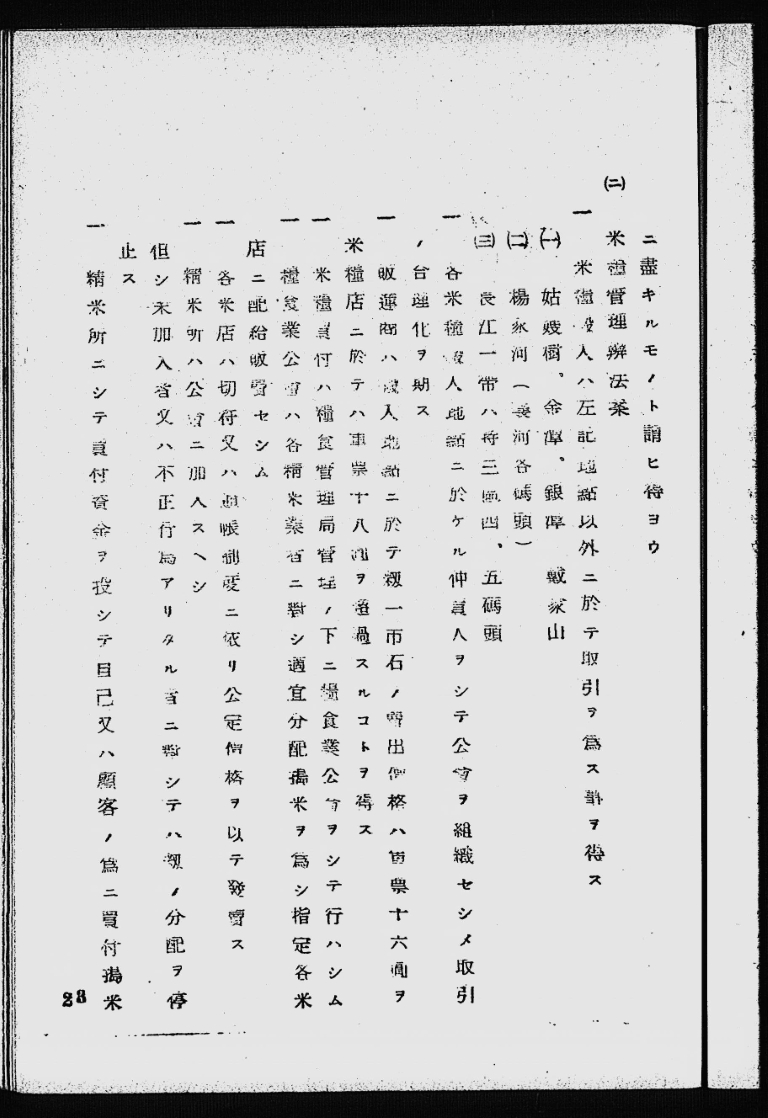 ニ盡キルモノト謂ヒ得ヨウ
(二) 米糧管理辨法案
一 米糧搬入ハ左記地點以外ニ於テ取引ヲ爲ス事ヲ得ス
(一) 姑嫂樹、金潭、銀潭 戴家山
(二) 楊家河(裏河各碼頭)
(三) 長江一帶ハ特三區四、五碼頭
一 各米糧搬入地點ニ於ケル仲買人ヲシテ公會ヲ組織セシメ取引
ノ合理化ヲ期ス
一 販運商ハ搬入地點ニ於テ糙一市石ノ賣出價格ハ軍票十六圓ヲ
米糧店ニ於テハ軍票十八圓ヲ超過スルコトヲ得ス
一 米糧買付ハ糧食管理局管理ノ下ニ糧食業公會ヲシテ行ハシム
一 糧食業公會ハ各精米業者ニ對シ適宜分配搗米ヲ爲シ指定各米
店ニ配給販賣セシム
一 各米店ハ切符又ハ通帳制度ニ依リ公定價格ヲ以テ發賣ス
一 精米所ハ公會ニ加入スヘシ
但シ未加入者又ハ不正行爲アリタル者ニ對シテハ糙ノ分配ヲ停
止ス
一 精米所ニシテ買付資金ヲ投シテ自己又ハ顧客ノ爲ニ買付搗米
23